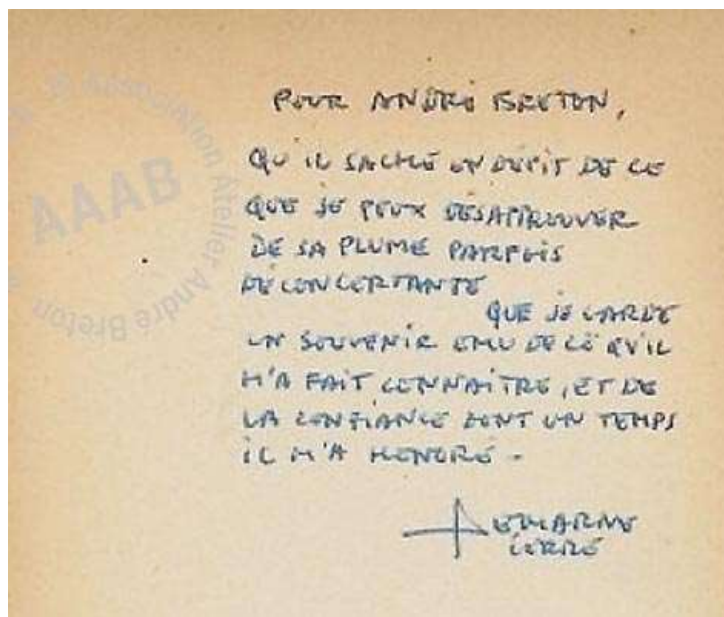 POUR ANDRÉ BRETON,
QU'IL SACHE EN DÉPIT DE CE
QUE JE PEUX DÉSAPPROUVER
DE SA PLUME PARFOIS
DÉCONCERTANTE
QUE JE GARDE
UN SOUVENIR EMU DE CE QU'IL
M'A FAIT CONNAÎTRE, ET DE
LA CONFIANCE DONT UN TEMPS
IL M'A HONORÉ.
DEMARNE
PIERRE
AAAB
Association Atelier André Breton